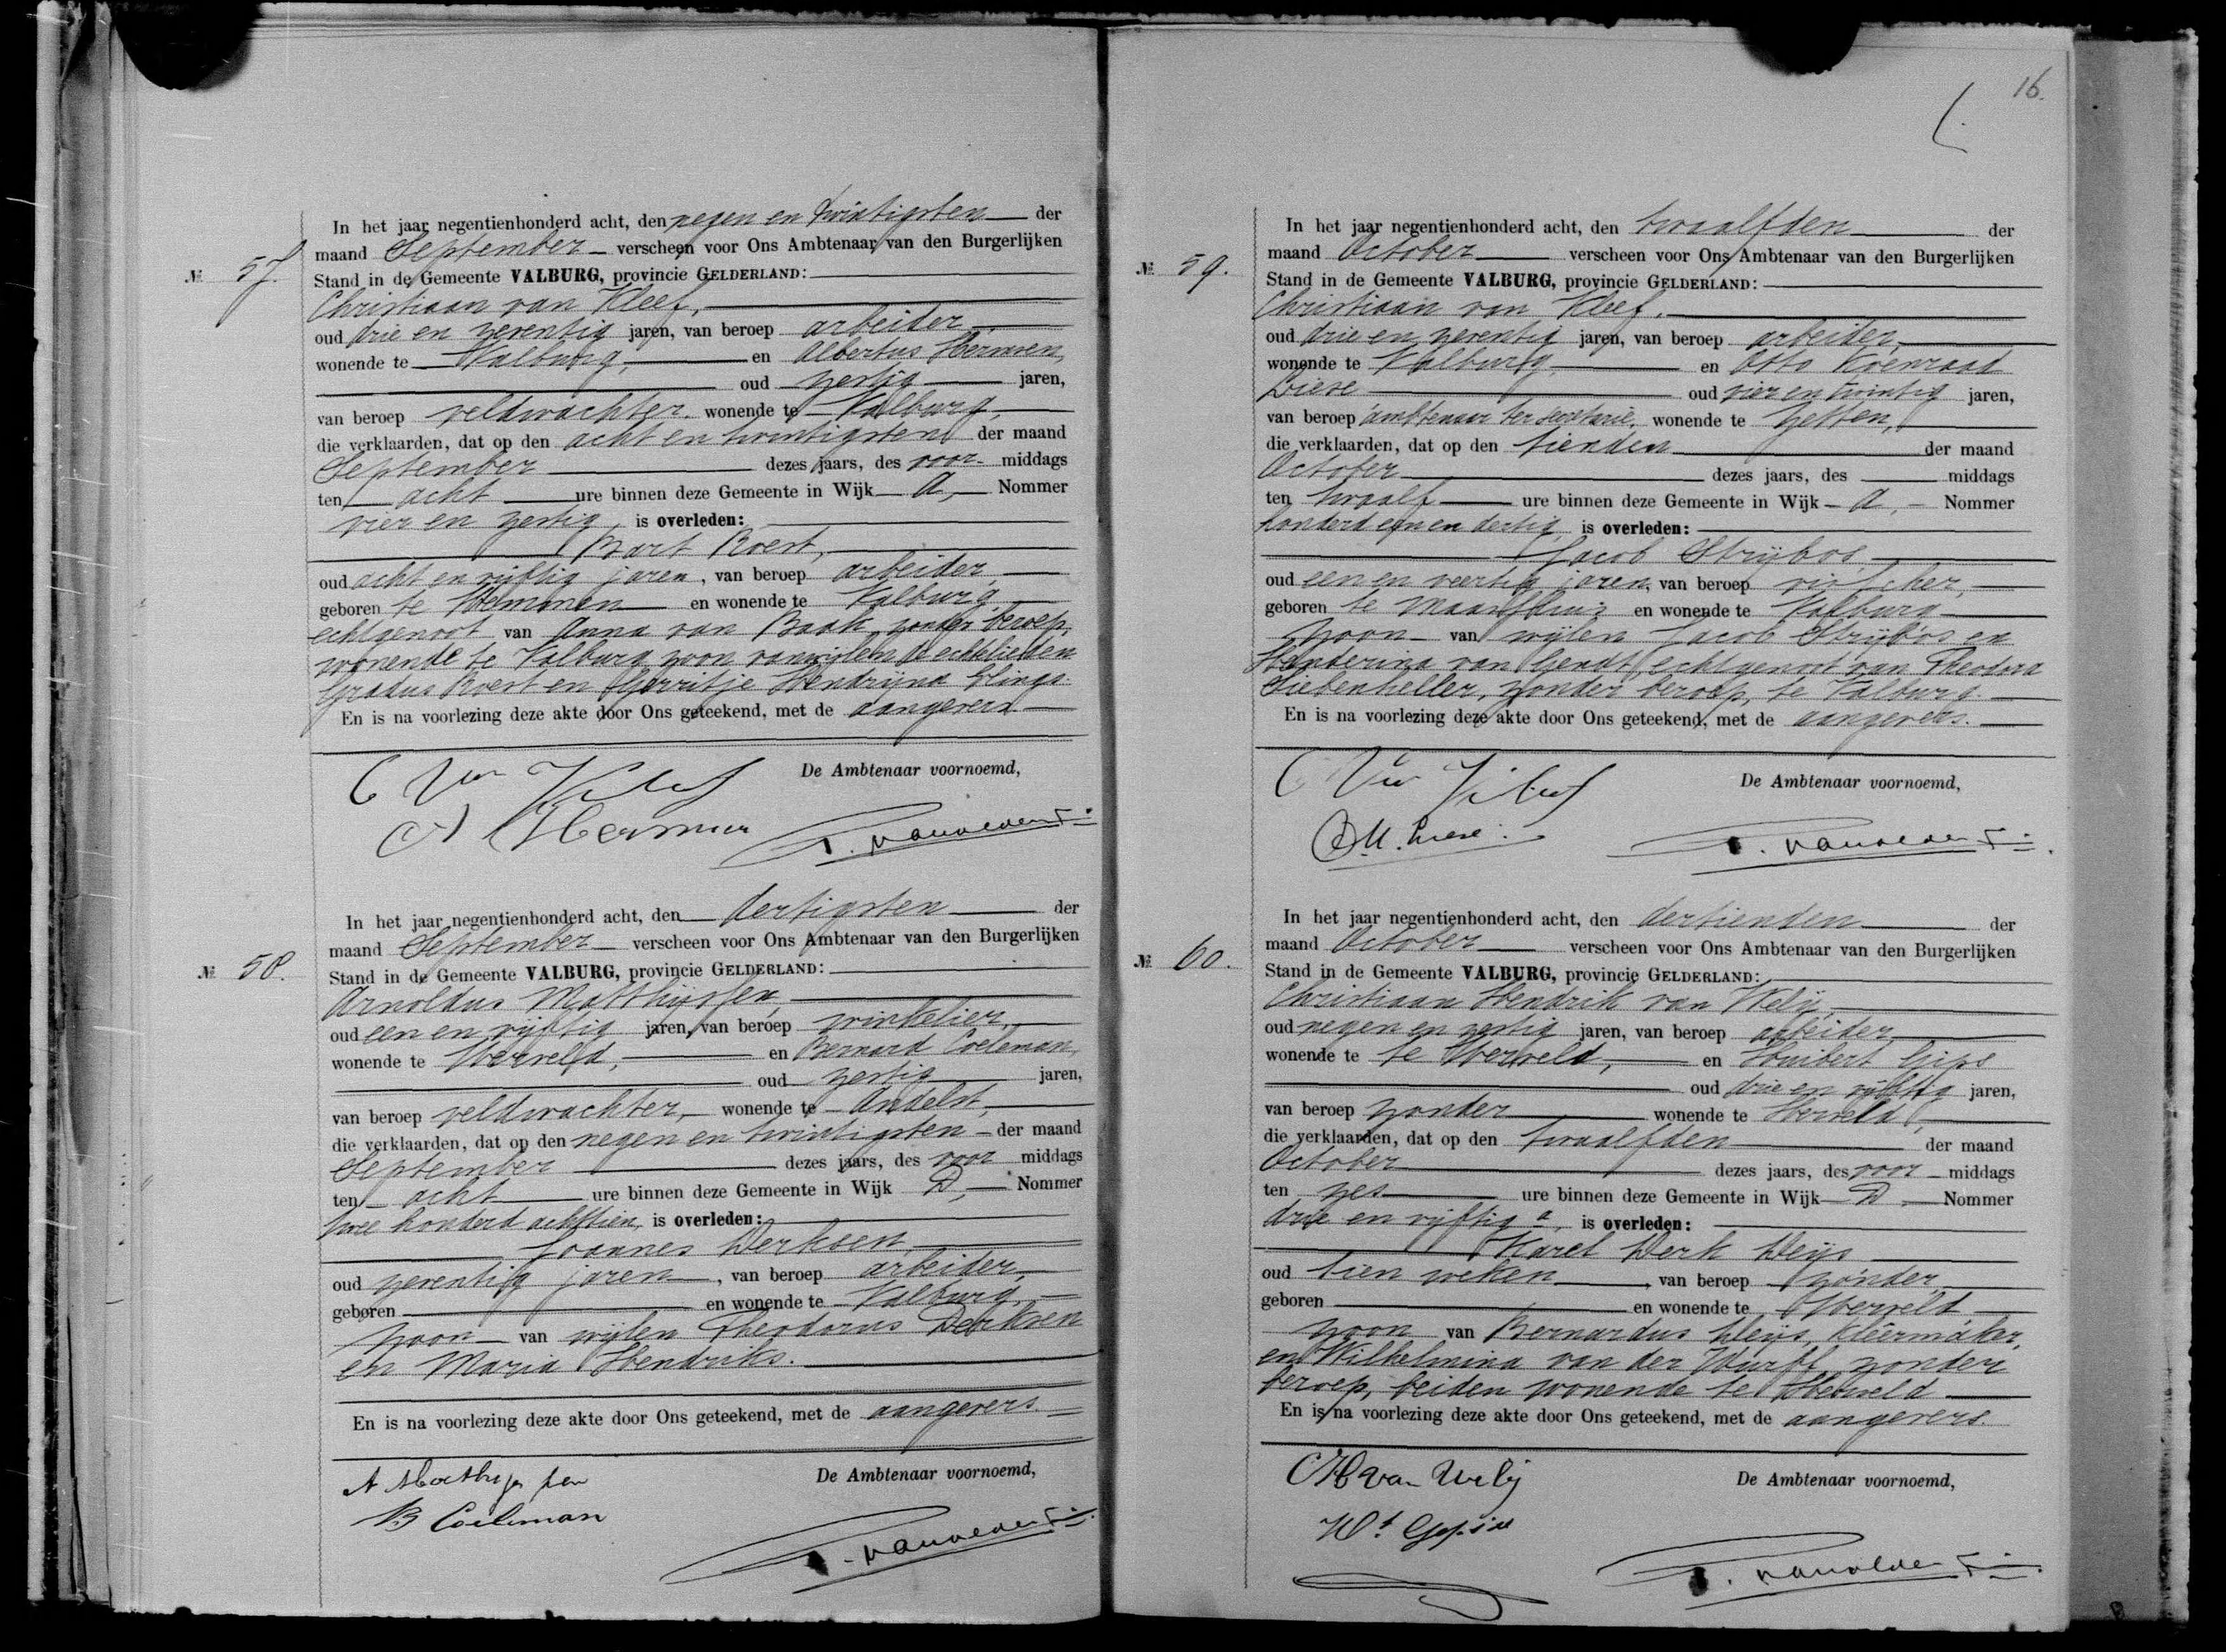 In het jaar negentienhonderd acht, den negen en twintigsten der
maand September verscheen voor Ons Ambtenaar van den Burgerlijken
№ 57. Stand in de Gemeente VALBURG, provincie GELDERLAND:
Christiaan van Kleef,
oud drie en zeventig jaren, van beroep arbeider,
wonende te Valburg, en Albertus Hermsen,
oud zestig jaren,
van beroep veldwachter, wonende te Valburg,
die verklaarden, dat op den acht en twintigsten der maand
September dezes jaars, des voor- middags
ten acht ure binnen deze Gemeente in Wijk A, Nommer
vier en zestig, is overleden:
Bart Roest,
oud acht en vijftig jaren, van beroep arbeider,
geboren te Hemmen en wonende te Valburg,
echtgenoot van Anna van Baak, zonder beroep,
wonende te Valburg, zoon van wijlen de echtelieden
Gradus Roest en Gerritje Hendrijna
En is na voorlezing deze akte door Ons geteekend, met de aangevers.
De Ambtenaar voornoemd,
C van Kleef
A Hermsen
In het jaar negentienhonderd acht, den dertigsten der
maand September verscheen voor Ons Ambtenaar van den Burgerlijken
№ 58. Stand in de Gemeente VALBURG, provincie GELDERLAND:
Arnoldus Matthijssen,
oud een en vijftig jaren, van beroep winkelier,
wonende te Herveld, en Bernard Coeleman,
oud zestig jaren,
van beroep veldwachter, wonende te Andelst,
die verklaarden, dat op den negen en twintigsten der maand
September dezes jaars, des voor middags
ten acht ure binnen deze Gemeente in Wijk D, Nommer
twee honderd achttien, is overleden:
Joannes Derksen,
oud zeventig jaren, van beroep arbeider,
geboren en wonende te Valburg,
zoon van wijlen Theodorus Derksen
en Maria Hendriks.
En is na voorlezing deze akte door Ons geteekend, met de aangevers.
De Ambtenaar voornoemd,
A Matthijssen
B Coeleman
16.
In het jaar negentienhonderd acht, den twaalfden der
maand October verscheen voor Ons Ambtenaar van den Burgerlijken
№ 59. Stand in de Gemeente VALBURG, provincie GELDERLAND:
Christiaan van Kleef,
oud drie en zeventig jaren, van beroep arbeider,
wonende te Valburg en Otto Koenraad
Liese oud vier en twintig jaren,
van beroep ambtenaar ter secretarie, wonende te Zetten,
die verklaarden, dat op den tienden der maand
October dezes jaars, des middags
ten twaalf ure binnen deze Gemeente in Wijk A, Nommer
honderd een en dertig, is overleden:
Jacob Strijbos,
oud een en veertig jaren, van beroep visscher,
geboren te Maassluis en wonende te Valburg
zoon van wijlen Jacob Strijbos en
Hendrina van Gendt, echtgenoot van Theodora
Siebenheller, zonder beroep, te Valburg.
En is na voorlezing deze akte door Ons geteekend, met de aangevers.
De Ambtenaar voornoemd,
C van Kleef
In het jaar negentienhonderd acht, den dertienden der
maand October verscheen voor Ons Ambtenaar van den Burgerlijken
№ 60. Stand in de Gemeente VALBURG, provincie GELDERLAND:
Christiaan Hendrik van Welij,
oud negen en zestig jaren, van beroep arbeider
wonende te te Herveld, en Huibert Gips
oud drie en vijftig jaren,
van beroep zonder wonende te Herveld,
die verklaarden, dat op den twaalfden der maand
October dezes jaars, des voor middags
ten zes ure binnen deze Gemeente in Wijk D, Nommer
drie en vijftig a, is overleden:
Karel Derk Weijs
oud tien weken, van beroep zonder,
geboren en wonende te Herveld
zoon van Bernardus Weijs, kleermaker,
en Wilhelmina van der Wurff, zonder
beroep, beiden wonende te Herveld
En is na voorlezing deze akte door Ons geteekend, met de aangevers.
De Ambtenaar voornoemd,
CH van Welij